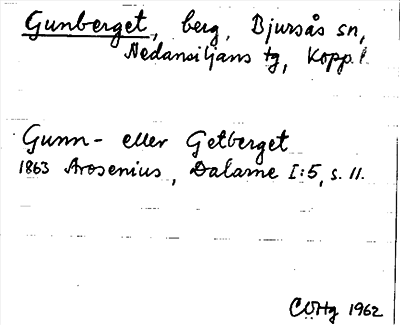 Gunberget, berg, Bjursås sn,
Nedansiljans tg, Kopp. l
Gunn- eller Getberget
1863 Arosenius, Dalarne I:5, s. 11.
CÖHg 1962